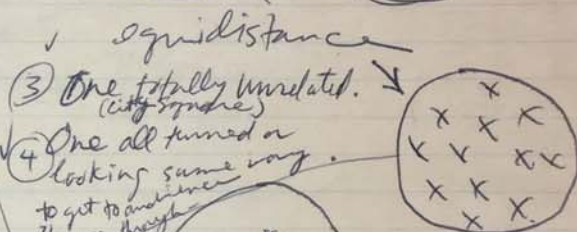 ✓ equidistance
③ One totally unrelated.
(city square)
✓ ④ One all turned or
looking same way.
to get to audience
through
X
X X X
X X X X
X X
X X